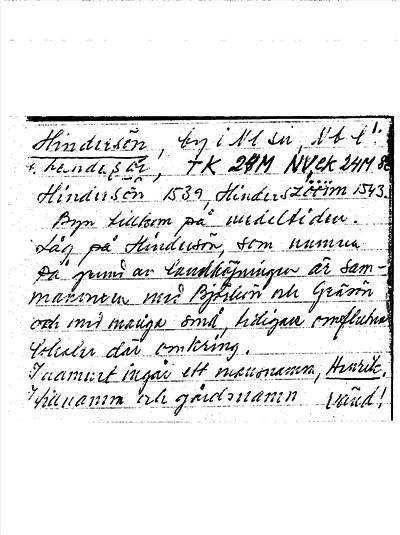 Hindersön, by i Nl sn, Nbl.
hendesör, TK 24M NYCK 24M 8c
Hindersön 1539, Hinderszöön 1543.
Byn tillkom på medeltiden.
Låg på Hindersön, som numera
på grund av landhöjningen är sam-
manvuxen med Björkön och Gräsön
och med många små, tidigare omflutna
lokaler där omkring.
I namnet ingår ett mansnamn, Henrik.
tillnamn och gårdsnamn Vänd!